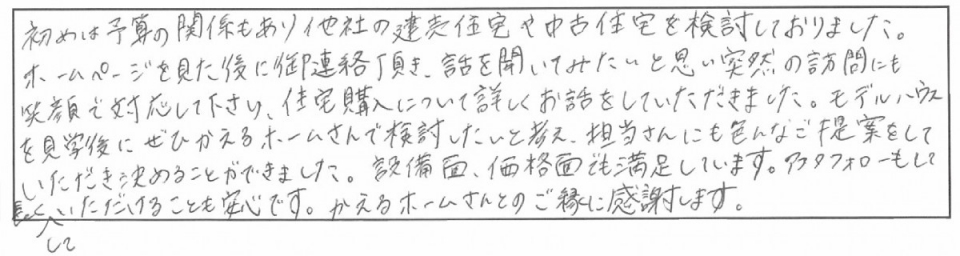 初めは予算の関係もあり他社の建売住宅や中古住宅を検討しておりました。
ホームページを見た後に御連絡頂き、話を聞いてみたいと思い突然の訪問にも
笑顔で対応して下さり、住宅購入について詳しくお話をしていただきました。モデルハウス
を見学後にぜひかえるホームさんで検討したいと考え、担当さんにも色んなご提案をして
いただき決めることができました。設備面、価格面でも満足しています。アフタフォローもして
長くいただけることも安心です。かえるホームさんとのご縁に感謝します。
して